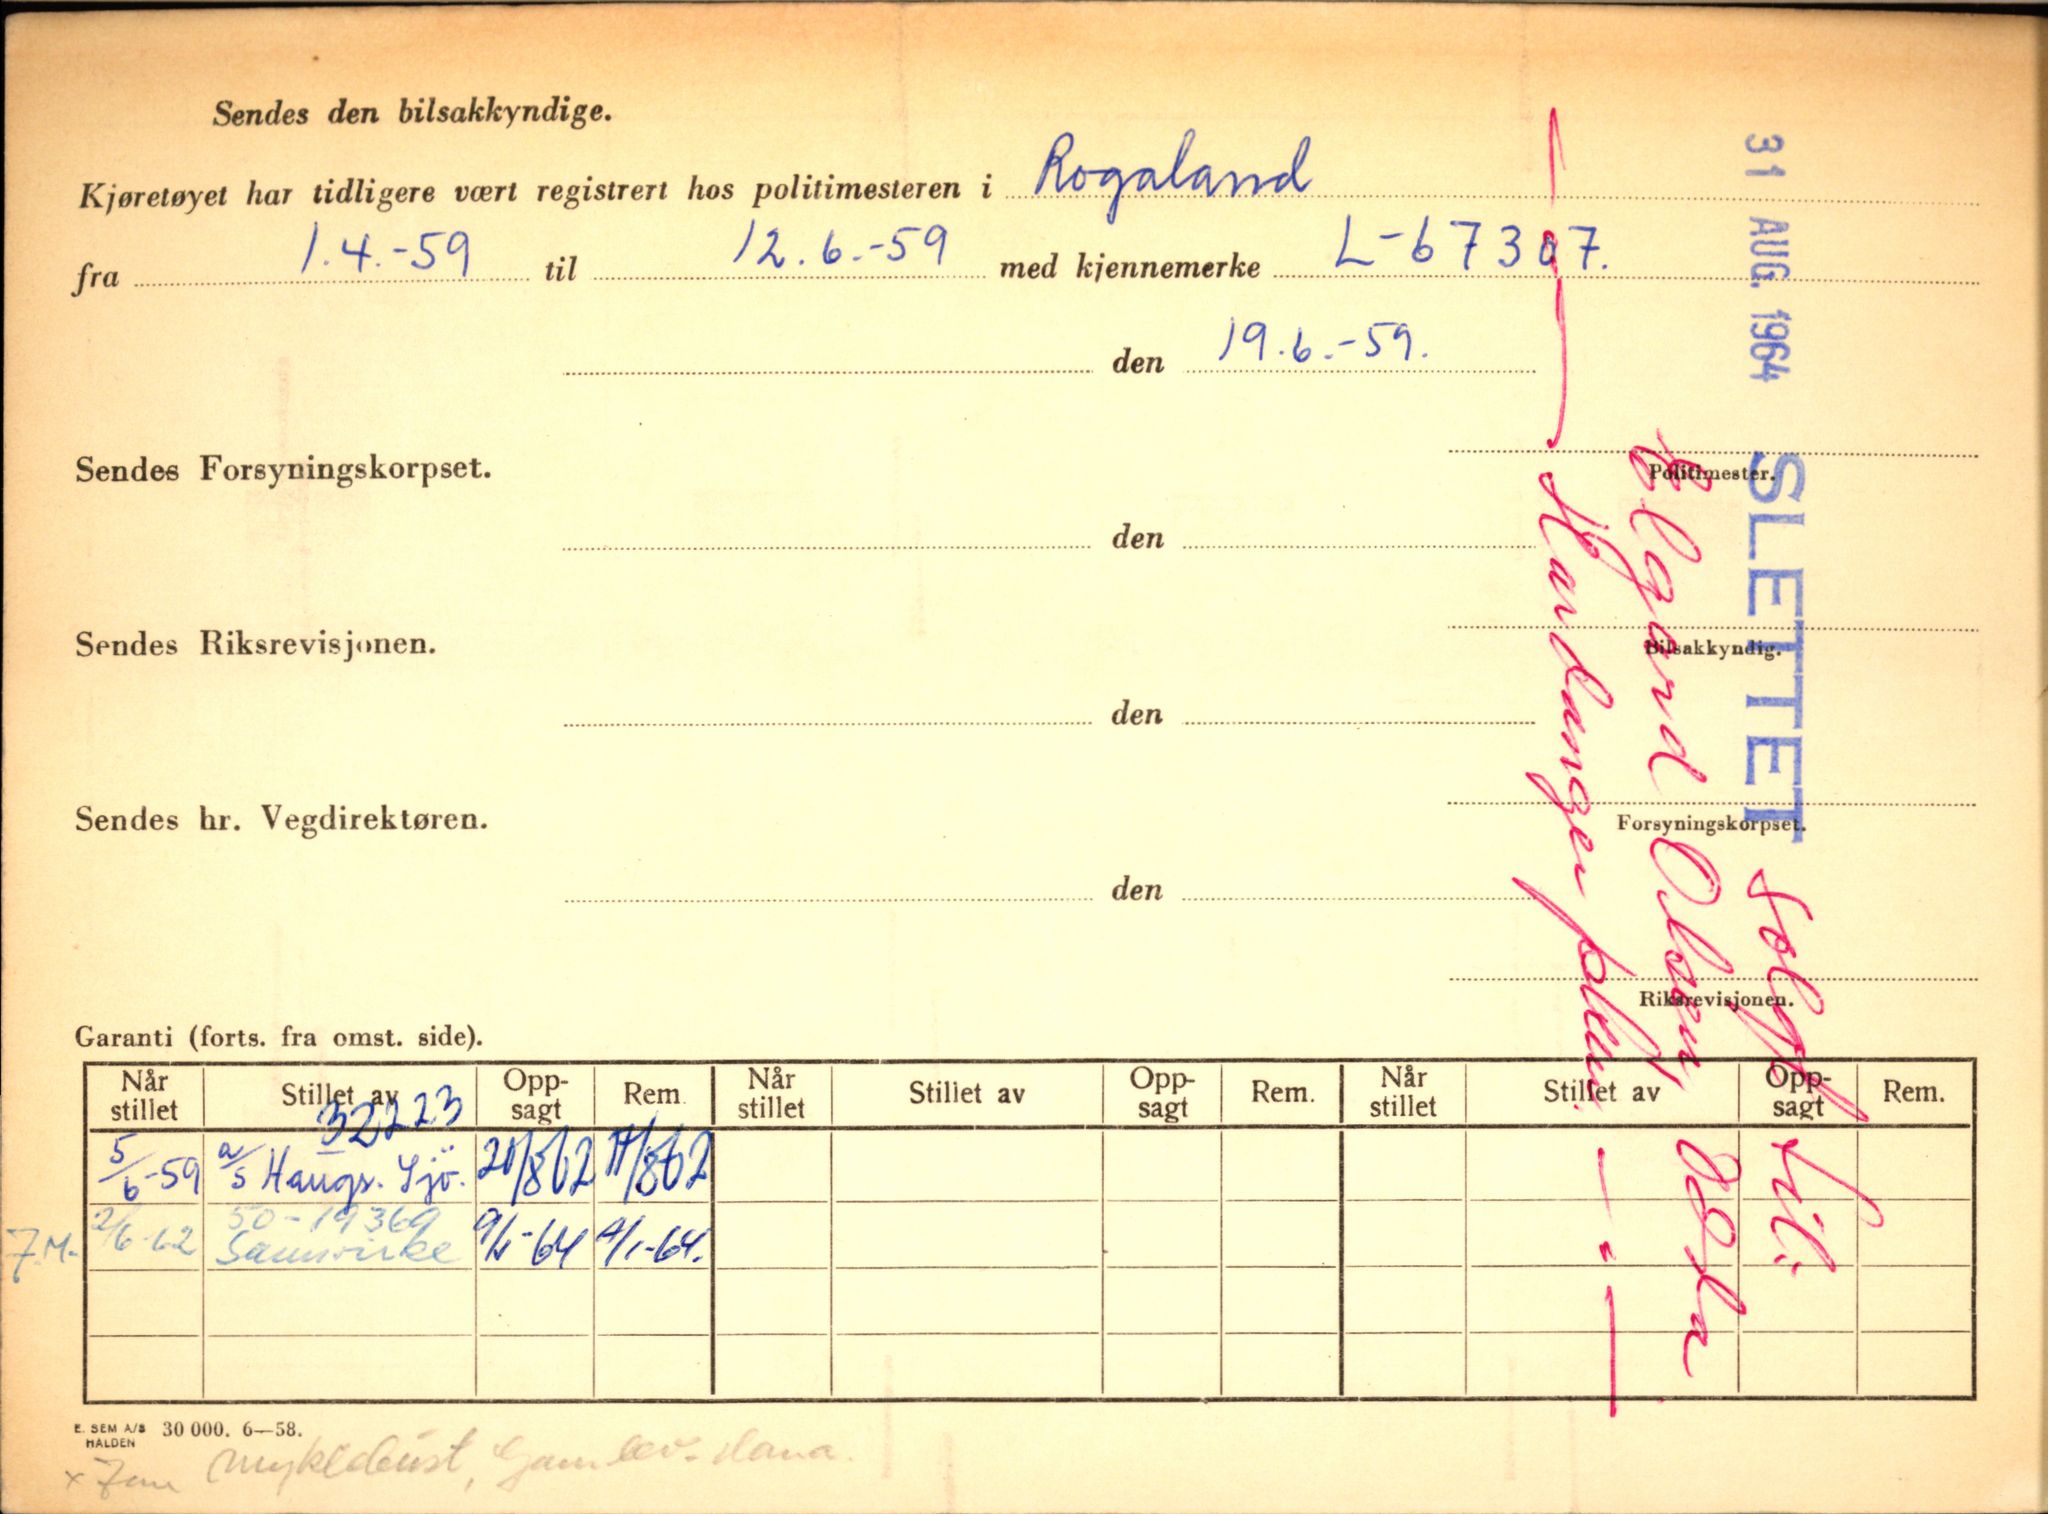 Sendes den bilsakkyndige.
Kjøretøyet har tidligere vært registrert hos politimesteren i Rogaland
fra 1.4.-59 til 12.6.-59 med kjennemerke L-67307.
den 19.6.-59.
Politimester.
Sendes Forsyningskorpset.
den
Bilsakkyndig.
Sendes Riksrevisjonen.
den
Forsyningskorpset.
Sendes hr. Vegdirektøren.
den
Riksrevisjonen.
31 AUG. 1964 SLETTET
Solgt til:
Elgard Olsen
Hardanger
Garanti (forts. fra omst. side).
Når stillet Stillet av Opp-sagt Rem. Når stillet Stillet av Opp-sagt Rem. Når stillet Stillet av Opp-sagt Rem.
32223
5/6-59 a/s Haugs. Sjö. 20/862 17/862
50-19369
7.M. 2/6-62 Samvirke 9/1-64
E. SEM A/S HALDEN 30 000. 6—58.
x Myklebust,